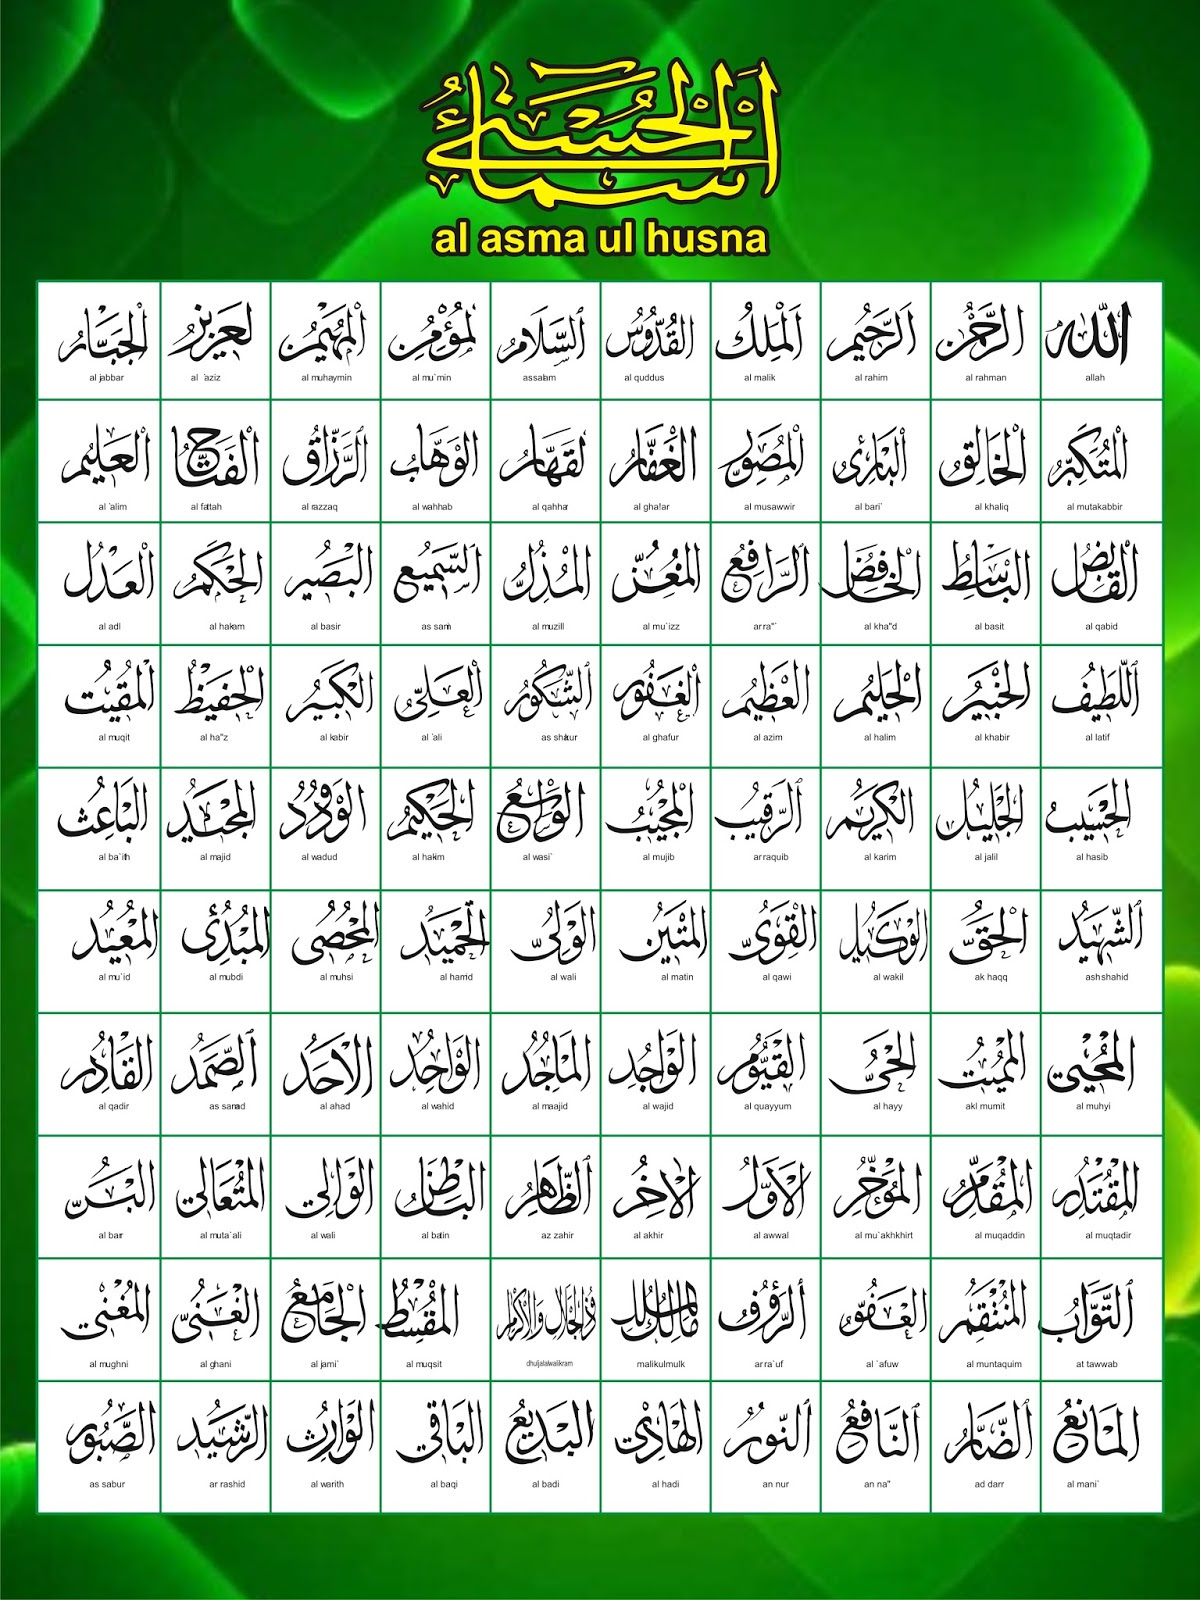 أسماء الحسنى
al asma ul husna
الله الرحمن الرحيم الملك القدوس السلام لمؤمن المهيمن لعزيز الجبار
al jabbar al `aziz al muhaymin al mu`min assalam al quddus al malik al rahim al rahman allah
المتكبر الخالق البارئ المصور الغفار لقهار الوهاب الرزاق الفتاح العليم
al `alim al fattah al razzaq al wahhab al qahhar al gha!ar al musawwir al bari` al khaliq al mutakabbir
القابض الباسط الخافض الرافع المعز المذل السميع البصير الحكم العدل
al adl al hakam al basir as sami al muzill al mu`izz ar ra"` al kha"d al basit al qabid
اللطيف الخبير الحليم العظيم الغفور الشكور العلي الكبير الحفيظ المقيت
al muqit al ha"z al kabir al `ali as shakur al ghafur al azim al halim al khabir al latif
الحسيب الجليل الكريم الرقيب المجيب الواسع الحكيم الودود المجيد الباعث
al ba`ith al majid al wadud al hakim al wasi` al mujib ar raquib al karim al jalil al hasib
الشهيد الحق الوكيل القوى المتين الولى الحميد المحصى المبدئ المعيد
al mu`id al mubdi al muhsi al hamid al wali al matin al qawi al wakil ak haqq ash shahid
المحيي المميت الحى القيوم الواجد الماجد الواحد الاحد الصمد القادر
al qadir as samad al ahad al wahid al maajid al wajid al quayyum al hayy akl mumit al muhyi
المقتدر المقدم المؤخر الاول الاخر الظاهر الباطن الوالي المتعالي البر
al barr al muta`ali al wali al batin az zahir al akhir al awwal al mu`akhkhirt al muqaddin al muqtadir
التواب المنتقم العفو الرؤوف مالك الملك ذالجلال والاكرام المقسط الجامع الغنى المغنى
al mughni al ghani al jami` al muqsit dhuljalalwalikram malikulmulk ar ra`uf al `afuw al muntaquim at tawwab
المانع الضار النافع النور الهادي البديع الباقي الوارث الرشيد الصبور
as sabur ar rashid al warith al baqi al badi al hadi an nur an na" ad darr al mani`